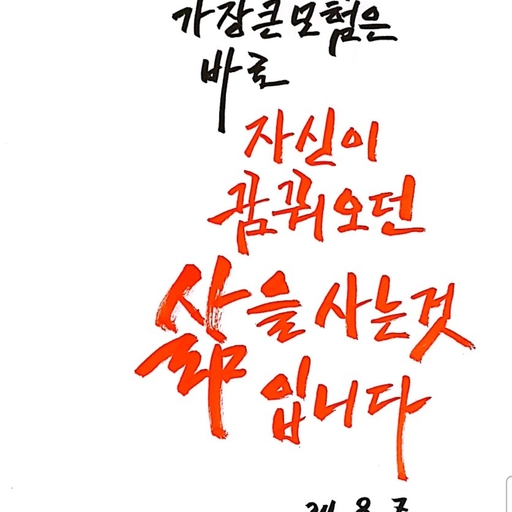 가장큰모험은
바로
자신이
꿈꿔오던
삶을사는것
입니다